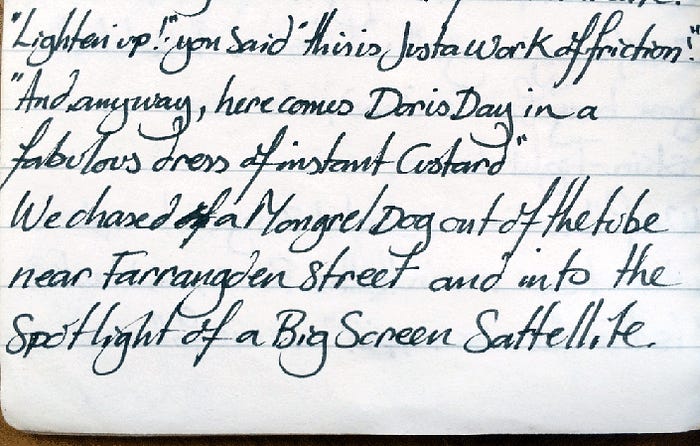 "Lighten up!" you said "this is Just a work of friction."
"And, anyway, here comes Doris Day in a
fabulous dress of instant Custard"
We chased a Mongrel Dog out of the tube
near Farrangden Street and into the
Spotlight of a Big Screen Sattellite.